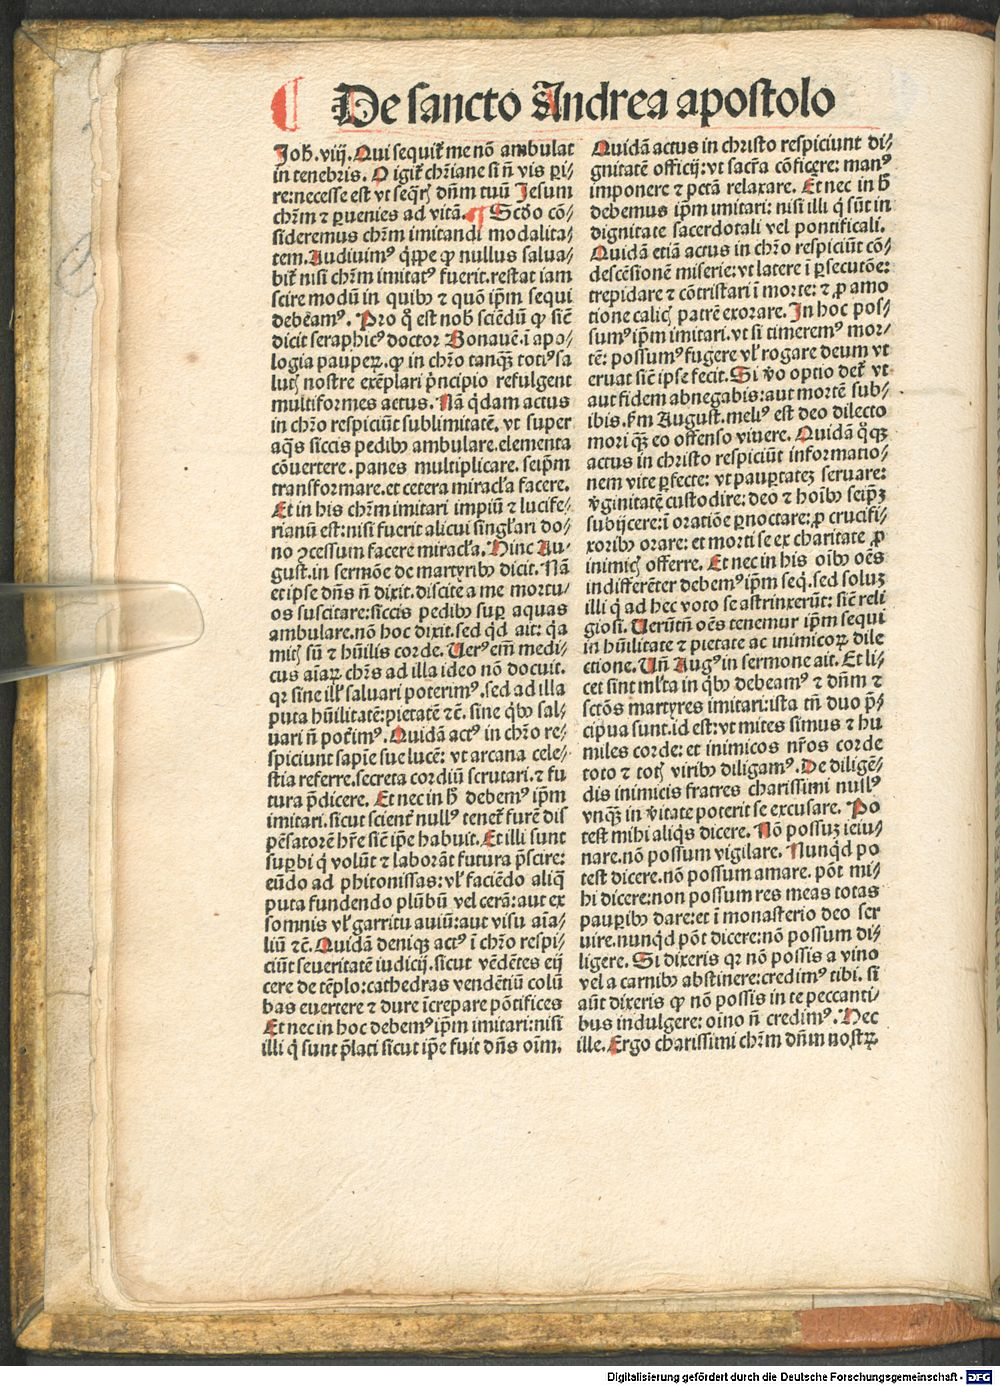 De sancto Andrea apostolo
Joh̄. viij. Qui sequit᷑ me nō ambulat
in tenebris. O igit᷑ chr̄iane si n̄ vis ꝑi-
re: necesse est vt seqr̄ꝭ dn̄m tuū Jesum
chr̄m ⁊ ꝑuenies ad vitā. ¶ Scd̄o cō-
sideremus chr̄m imitandi modalita-
tem. Audiuimꝰ qͥppe ꝙ nullus salua-
bit᷑ nisi chr̄m imitatꝰ fuerit. restat iam
scire modū in quibꝫ ⁊ quō ip̄m sequi
debeamꝰ. Pro qͦ est nob̄ sciēdū ꝙ sic̄
dicit seraphicꝰ doctor Bonauē. ī apo-
logia pauperꝝ. ꝙ in chr̄o tanqꝫ̄ totiꝰ sa
lutꝭ nostre exēplari p̄ncipio refulgent
multiformes actus. Nā qͥdam actus
in chr̄o respiciūt sublimitatē, vt super
aqͣs siccis pedibꝫ ambulare. elementa
cōuertere. panes multiplicare. seip̄m
transformare. et cetera miracl̄a facere.
Et in his chr̄m imitari impiū ⁊ lucife-
rianū est: nisi fuerit alicui singl̄ari do-
no ꝯcessum facere miracl̄a. Hinc Au-
gust. in sermōe de martyribꝫ dicit. Nā
et ipse dn̄s n̄ dixit. discite a me mortu-
os suscitare: siccis pedibꝫ suꝑ aquas
ambulare. nō hoc dixit. sed qͥd ait: qͥa
mitꝭ sū ⁊ hūilis corde. Uerꝰ em̄ medi-
cus aīarꝝ chr̄s ad illa ideo nō docuit.
qꝛ sine ill̄ saluari poterimꝰ. sed ad illa
puta hūilitatē: pietatē ⁊c̄. sine qͥbꝫ sal-
uari n̄ pot̄imꝰ. Quidā actꝰ in chr̄o re-
spiciunt sapīe sue lucē: vt arcana cele-
stia referre. secreta cordiū scrutari. ⁊ fu
tura p̄dicere. Et nec in h̄ debemꝰ ip̄m
imitari. sicut scient᷑ nullꝰ tenet᷑ furē dis
pēsatorē hr̄e sic̄ ip̄e habuit. Et illi sunt
suꝑbi qͥ volūt ⁊ laborāt futura p̄scire:
eūdo ad phitonissas: vl̄ faciēdo aliqͥ
puta fundendo plūbū vel cerā: aut ex
somnis vl̄ garritu auiū: aut visu aīa-
liū ⁊c̄. Quidā deniqꝫ actꝰ ī chr̄o respi-
ciūt seueritatē iudicij. sicut vēdētes eij
cere de tēplo: cathedras vendētiū colū
bas euertere ⁊ dure īcrepare pōtifices
Et nec in hoc debemꝰ ip̄m imitari: nisi
illi qͥ sunt p̄lati sicut ip̄e fuit dn̄s oīm.
Quidā actus in christo respiciunt di-
gnitatē officij: vt sacr̄a cōficere: manꝰ
imponere ⁊ pctā relaxare. Et nec in h̄
debemus ip̄m imitari: nisi illi qͥ sūt in
dignitate sacerdotali vel pontificali.
Quidā etiā actus in chr̄o respiciūt cō-
descēsionē miserie: vt latere ī ꝑsecutōe:
trepidare ⁊ cōtristari ī morte: ⁊ ꝓ amo
tione calicꝭ patrē exorare. In hoc pos-
sumꝰ ip̄m imitari. vt si timeremꝰ mor-
tē: possumꝰ fugere vl̄ rogare deum vt
eruat sic̄ ipse fecit. Si v̄o optio det᷑ vt
aut fidem abnegabis: aut mortē sub-
ibis. ẜm August. meliꝰ est deo dilecto
mori qꝫ̄ eo offenso viuere. Quidā qͦqꝫ
actus in christo respiciūt informatio-
nem vite ꝑfecte: vt pauꝑtateꝫ seruare:
v̄ginitatē custodire: deo ⁊ hoībꝫ seip̄ꝫ
subijcere: ī oratiōe ꝑnoctare: ꝓ crucifi-
xoribꝫ orare: et morti se ex charitate ꝓ
inimicꝭ offerre. Et nec in his oībꝫ oēs
indifferēter debemꝰ ip̄m seqͥ. sed soluꝫ
illi qͥ ad hec voto se astrinxerūt: sic̄ reli
giosi. Uerūtn̄ oēs tenemur ip̄m sequi
in hūilitate ⁊ pietate ac inimicorꝝ dile
ctione. Un̄ Augꝰ in sermone ait. Et li-
cet sint ml̄ta in qͥbꝫ debeamꝰ ⁊ dn̄m ⁊
sctōs martyres imitari: ista tn̄ duo p̄-
cipua sunt. id est: vt mites simus ⁊ hu
miles corde: et inimicos nr̄os corde
toto ⁊ totꝭ viribꝫ diligamꝰ. De diligē-
dis inimicis fratres charissimi nullꝰ
vnqꝫ̄ in v̄itate poterit se excusare. Po
test mihi aliqͥs dicere. Nō possuꝫ ieiu-
nare. nō possum vigilare. Nunqͥd po
test dicere. nō possum amare. pōt mi-
hi dicere: non possum res meas totas
pauꝑibꝫ dare: et ī monasterio deo ser
uire. nunqͥd pōt dicere: nō possum di-
ligere. Si dixeris qꝛ nō possis a vino
vel a carnibꝫ abstinere: credimꝰ tibi. si
aūt dixeris ꝙ nō possis in te peccanti-
bus indulgere: oīno n̄ credimꝰ. Hec
ille. Ergo charissimi chr̄m dn̄m nostꝝ.
Digitalisierung gefördert durch die Deutsche Forschungsgemeinschaft - DFG